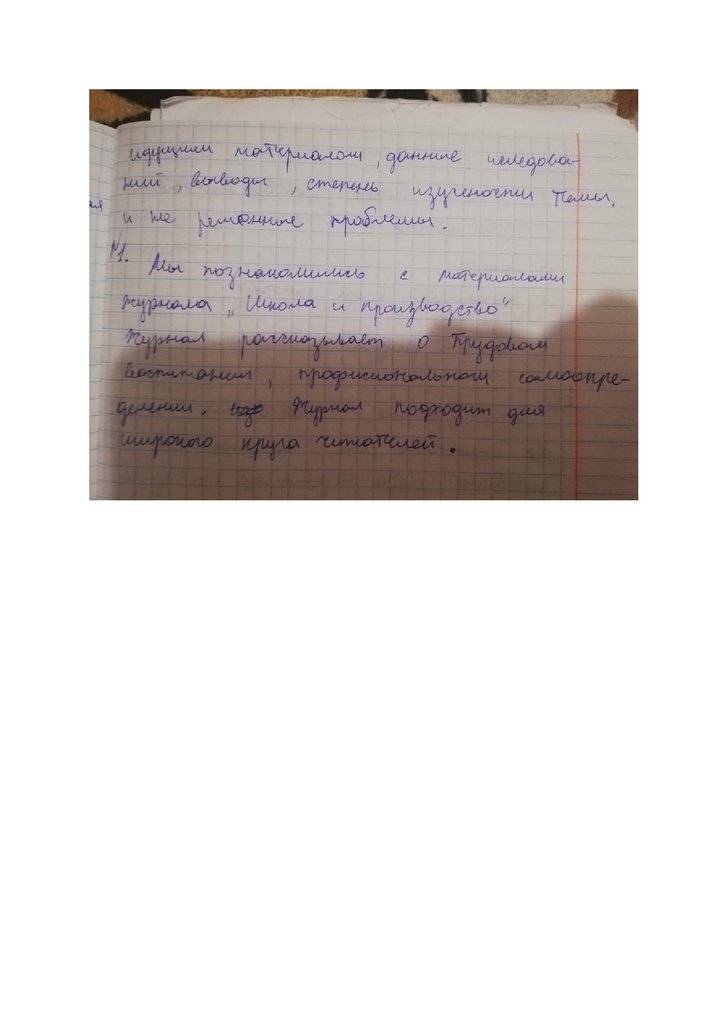 идущим материалом, данные иследова-
ний, выводы, степень изучености темы,
и не решонные проблемы.
ая
№1. Мы познакомились с материалами
журнала „Школа и производство"
Журнал рассказывает о Трудовом
воспитании, професиональном самоопре-
делении. Журнал подходит для
широкого круга читателей.